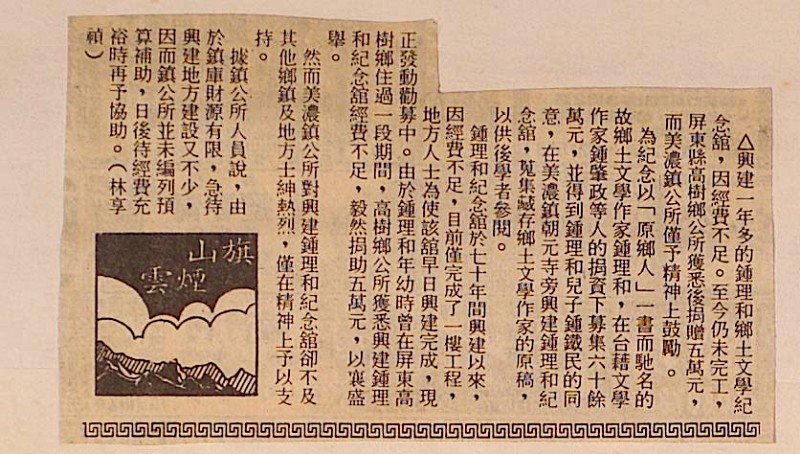 △興建一年多的鍾理和鄉土文學紀
念舘，因經費不足。至今仍未完工，
屏東縣高樹鄉公所獲悉後捐贈五萬元，
而美濃鎮公所僅予精神上鼓勵。
為紀念以「原鄉人」一書而馳名的
故鄉土文學作家鍾理和，在台籍文學
作家鍾肇政等人的捐資下募集六十餘
萬元，並得到鍾理和兒子鍾鐵民的同
意，在美濃鎮朝元寺旁興建鍾理和紀
念舘，蒐集藏存鄉土文學作家的原稿，
以供後學者參閱。
鍾理和紀念舘於七十年間興建以來，
因經費不足，目前僅完成了一樓工程，
地方人士為使該舘早日興建完成，現
正發動勸募中。由於鍾理和年幼時曾在屏東高
樹鄉住過一段期間，高樹鄉公所獲悉興建鍾理
和紀念舘經費不足，毅然捐助五萬元，以襄盛
舉。
然而美濃鎮公所對興建鍾理和紀念舘卻不及
其他鄉鎮及地方士紳熱烈，僅在精神上予以支
持。
據鎮公所人員說，由
於鎮庫財源有限，急待
興建地方建設又不少，
因而鎮公所並未編列預
算補助，日後待經費充
裕時再予協助。（林享
禎）
旗山
煙雲